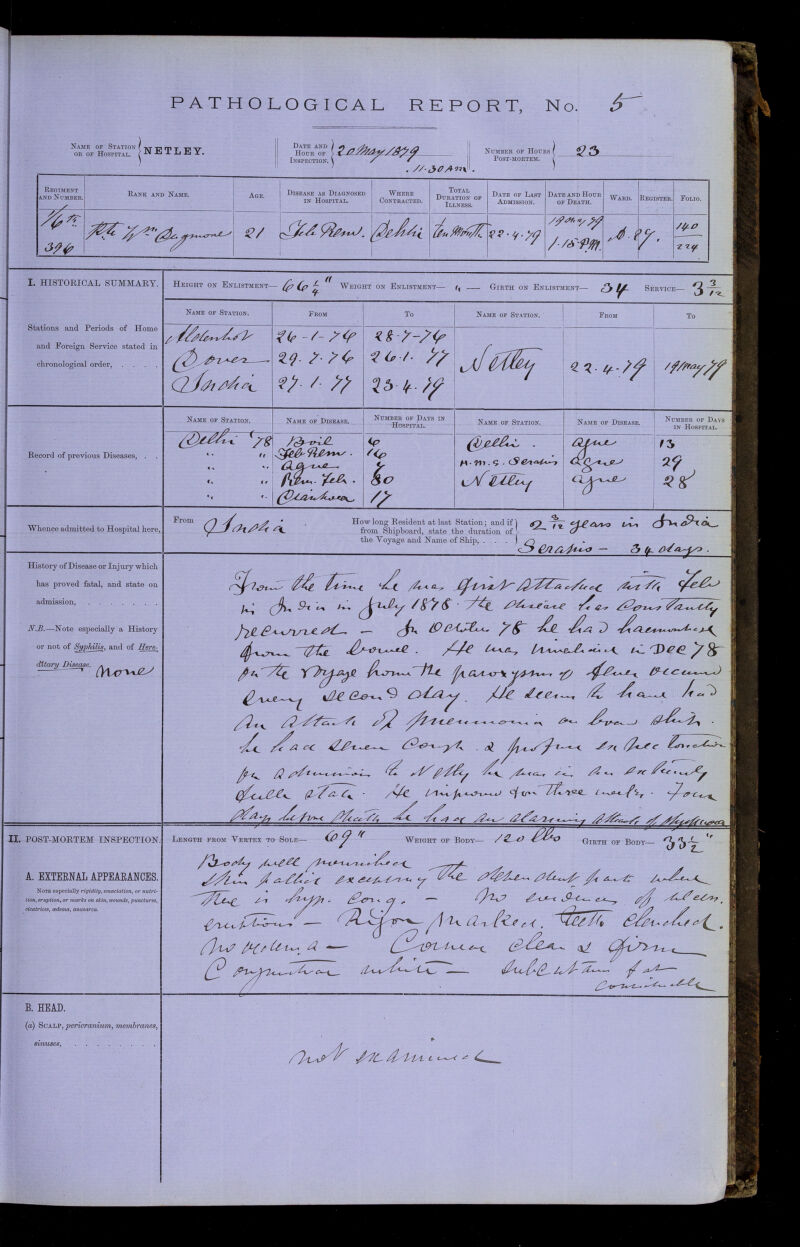 PATHOLOGICAL REPORT, No. 5
NAME OF STATION OR OF HOSPITAL. NETLEY.
DATE AND HOUR OF INSPECTION. 20 May 1879 11.30 AM.
NUMBER OF HOURS POST-MORTEM. 23
REGIMENT AND NUMBER. RANK AND NAME. AGE. DISEASE AS DIAGNOSED IN HOSPITAL. WHERE CONTRACTED. TOTAL DURATION OF ILLNESS. DATE OF LAST ADMISSION. DATE AND HOUR OF DEATH. WARD. REGISTER. FOLIO.
1/6th 396 Pte Wm 21 Feb Rem. Delhi ten Month 22.4.79 19 May 79 1.15 P.M. 140 224
I. HISTORICAL SUMMARY. HEIGHT ON ENLISTMENT— 66 1/4" WEIGHT ON ENLISTMENT— " — GIRTH ON ENLISTMENT— 34 SERVICE— 3 3/12
Stations and Periods of Home and Foreign Service stated in chronological order, . . . .
NAME OF STATION. FROM TO NAME OF STATION. FROM TO
Aldershot 26-1-76 28-7-76
Dover 29.7.76 26.1.77 Netley 22.4.79 19 May 79
India 27.1.77 23.4.79
Record of previous Diseases, . .
NAME OF STATION. NAME OF DISEASE. NUMBER OF DAYS IN HOSPITAL. NAME OF STATION. NAME OF DISEASE. NUMBER OF DAYS IN HOSPITAL.
Delhi '78 Boil 6 Delhi. Ague 13
" " Feb Rem. 16 H.M.S. Serapis Ague 29
" " Ague 7 Netley Ague 28
" " Rem. Feb. 80
" " Diarrhoea 17
Whence admitted to Hospital here, From India
How long Resident at last Station; and if from Shipboard, state the duration of the Voyage and Name of Ship, . . . . 2 3/12 years in India
Serapis — 34 days.
History of Disease or Injury which has proved fatal, and state on admission, . . . . . . . .
N.B.—Note especially a History or not of Syphilis, and of Hereditary Disease. None
From the time he was first attacked with Feb
in India in July 1878 the disease has constantly
recurred — In October 78 he had
from the bowel. He was invalided in DEC 78
on the voyage home the paroxysms of fever occurred
every second day. He seems to have had
an attack of pneumonia on board ship.
he had severe cough & profuse expectoration
on admission to Netley he was in an extremely
state. He improved for three weeks. Four
days before death he had an alarming attack of dyspnoea
II. POST-MORTEM INSPECTION. LENGTH FROM VERTEX TO SOLE— 69" WEIGHT OF BODY— 120 lbs GIRTH OF BODY— 33 1/2"
A. EXTERNAL APPEARANCES.
NOTE especially rigidity, emaciation, or nutrition, eruption, or marks on skin, wounds, punctures, cicatrices, œdema, anasarca.
Body well nourished
Skin pallid excepting the dependent parts where
there is hyp. cong. — No evidences of ulcers.
eruptions — Rigor marked. teeth clenched.
No oedema — Corneae clear & firm
Conjunctivae white — subcutan fat
considerable
B. HEAD.
(a) SCALP, pericranium, membranes, sinuses, . . . . . . . . .
not examined